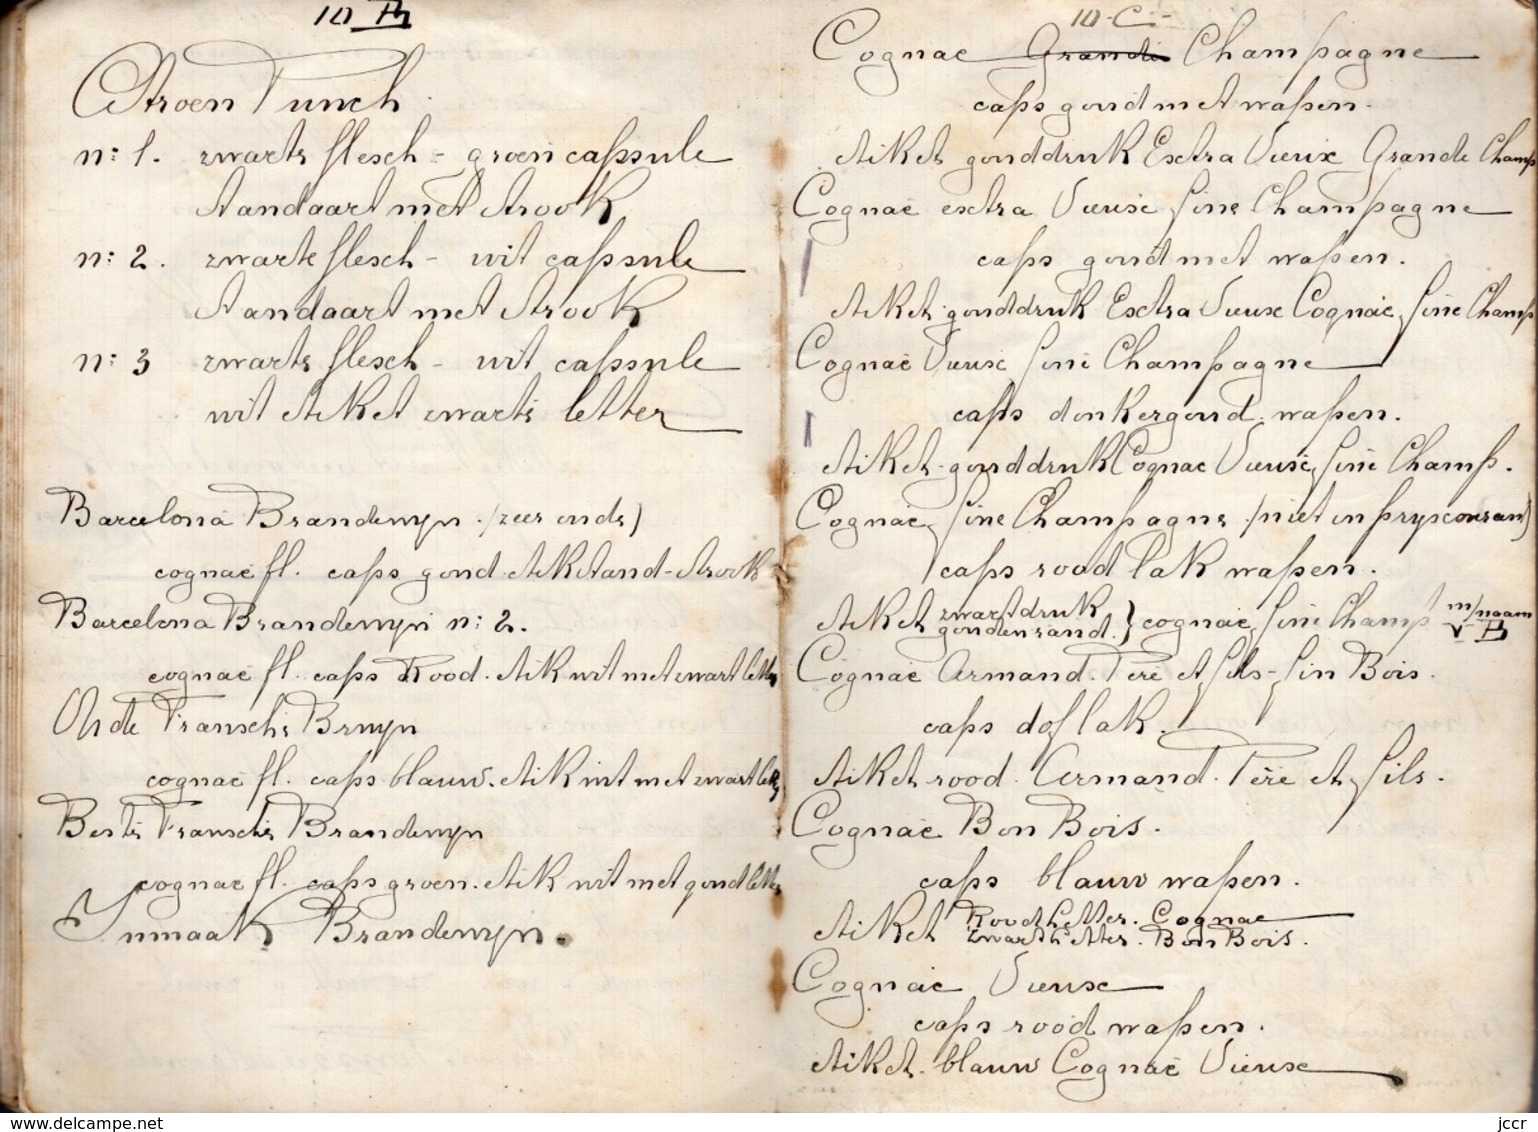 10 B
Citroen Punch
n: 1. zwarte flesch - groen capsule
Standaart met Strook
n: 2. zwarte flesch - wit capsule
Standaart met Strook
n: 3 zwarte flesch - wit capsule
wit Etiket zwarte letter
Barcelona Brandewyn. (zeer oude)
cognac fl. caps goud. Stand-Strook
Barcelona Brandewyn n: 2.
cognac fl. caps Rood. etik wit met zwart lett
Oude Fransche Bruyn
cognac fl. caps blauw. etik wit met zwart
Beste Fransche Brandewyn
cognac fl. caps groen. etik wit met goud
Inmaak Brandewyn.
10-C-
Cognac Grande Champagne
caps goud met wapen.
etiket gouddruk Extra Vieux Grande Champ
Cognac extra Vieuse fine Champagne
caps goud met wapen.
etiket gouddruk Extra Vieux Cognac fine Champ
Cognac Vieuse fine Champagne
caps donkergoud. wapen.
etiket-gouddruk Cognac Vieuse, fine Champ.
Cognac, fine Champagne (niet in pryscourant)
caps rood lak wapen.
etiket zwartdruk gouden rand. } cognac fine Champ m/naam v B
Cognac Armand. Père et fils-fin Bois.
caps dof lak.
etiket rood. Armand. Père et fils.
Cognac Bon Bois.
caps blauw wapen.
etiket Roodletter. Cognac
zwartletter. Bon Bois.
Cognac Vieuse
caps rood wapen.
etiket. blauw Cognac Vieuse
delcampe.net
jccr